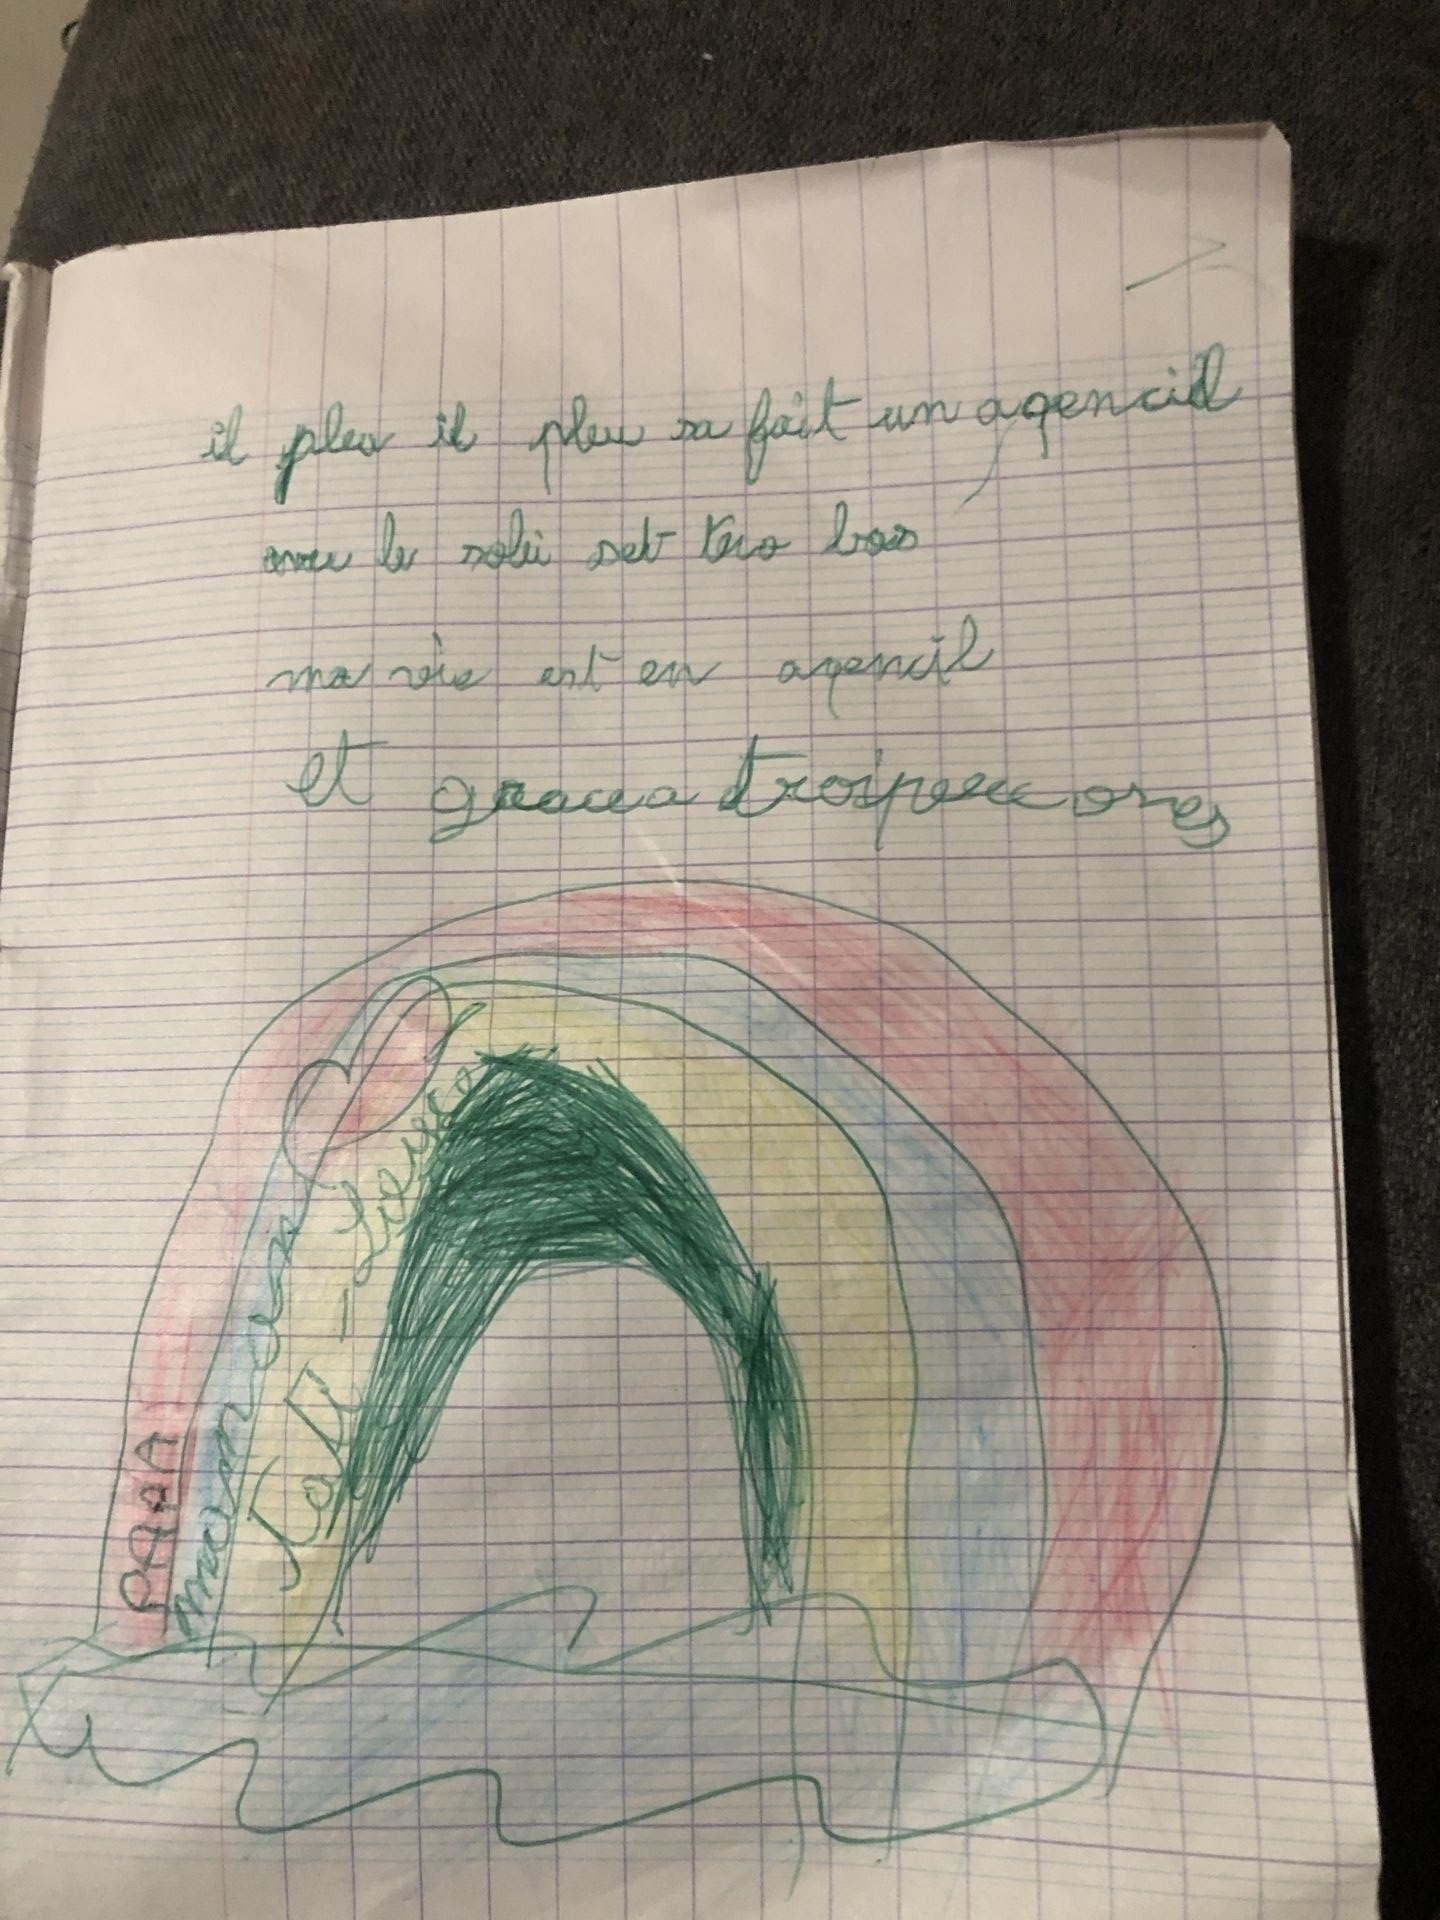 il pleu il pleu sa fait un agenciel
avec le solei set tro bau
ma vie est en agencil
et grace a troi persconnes
PAPA
maman